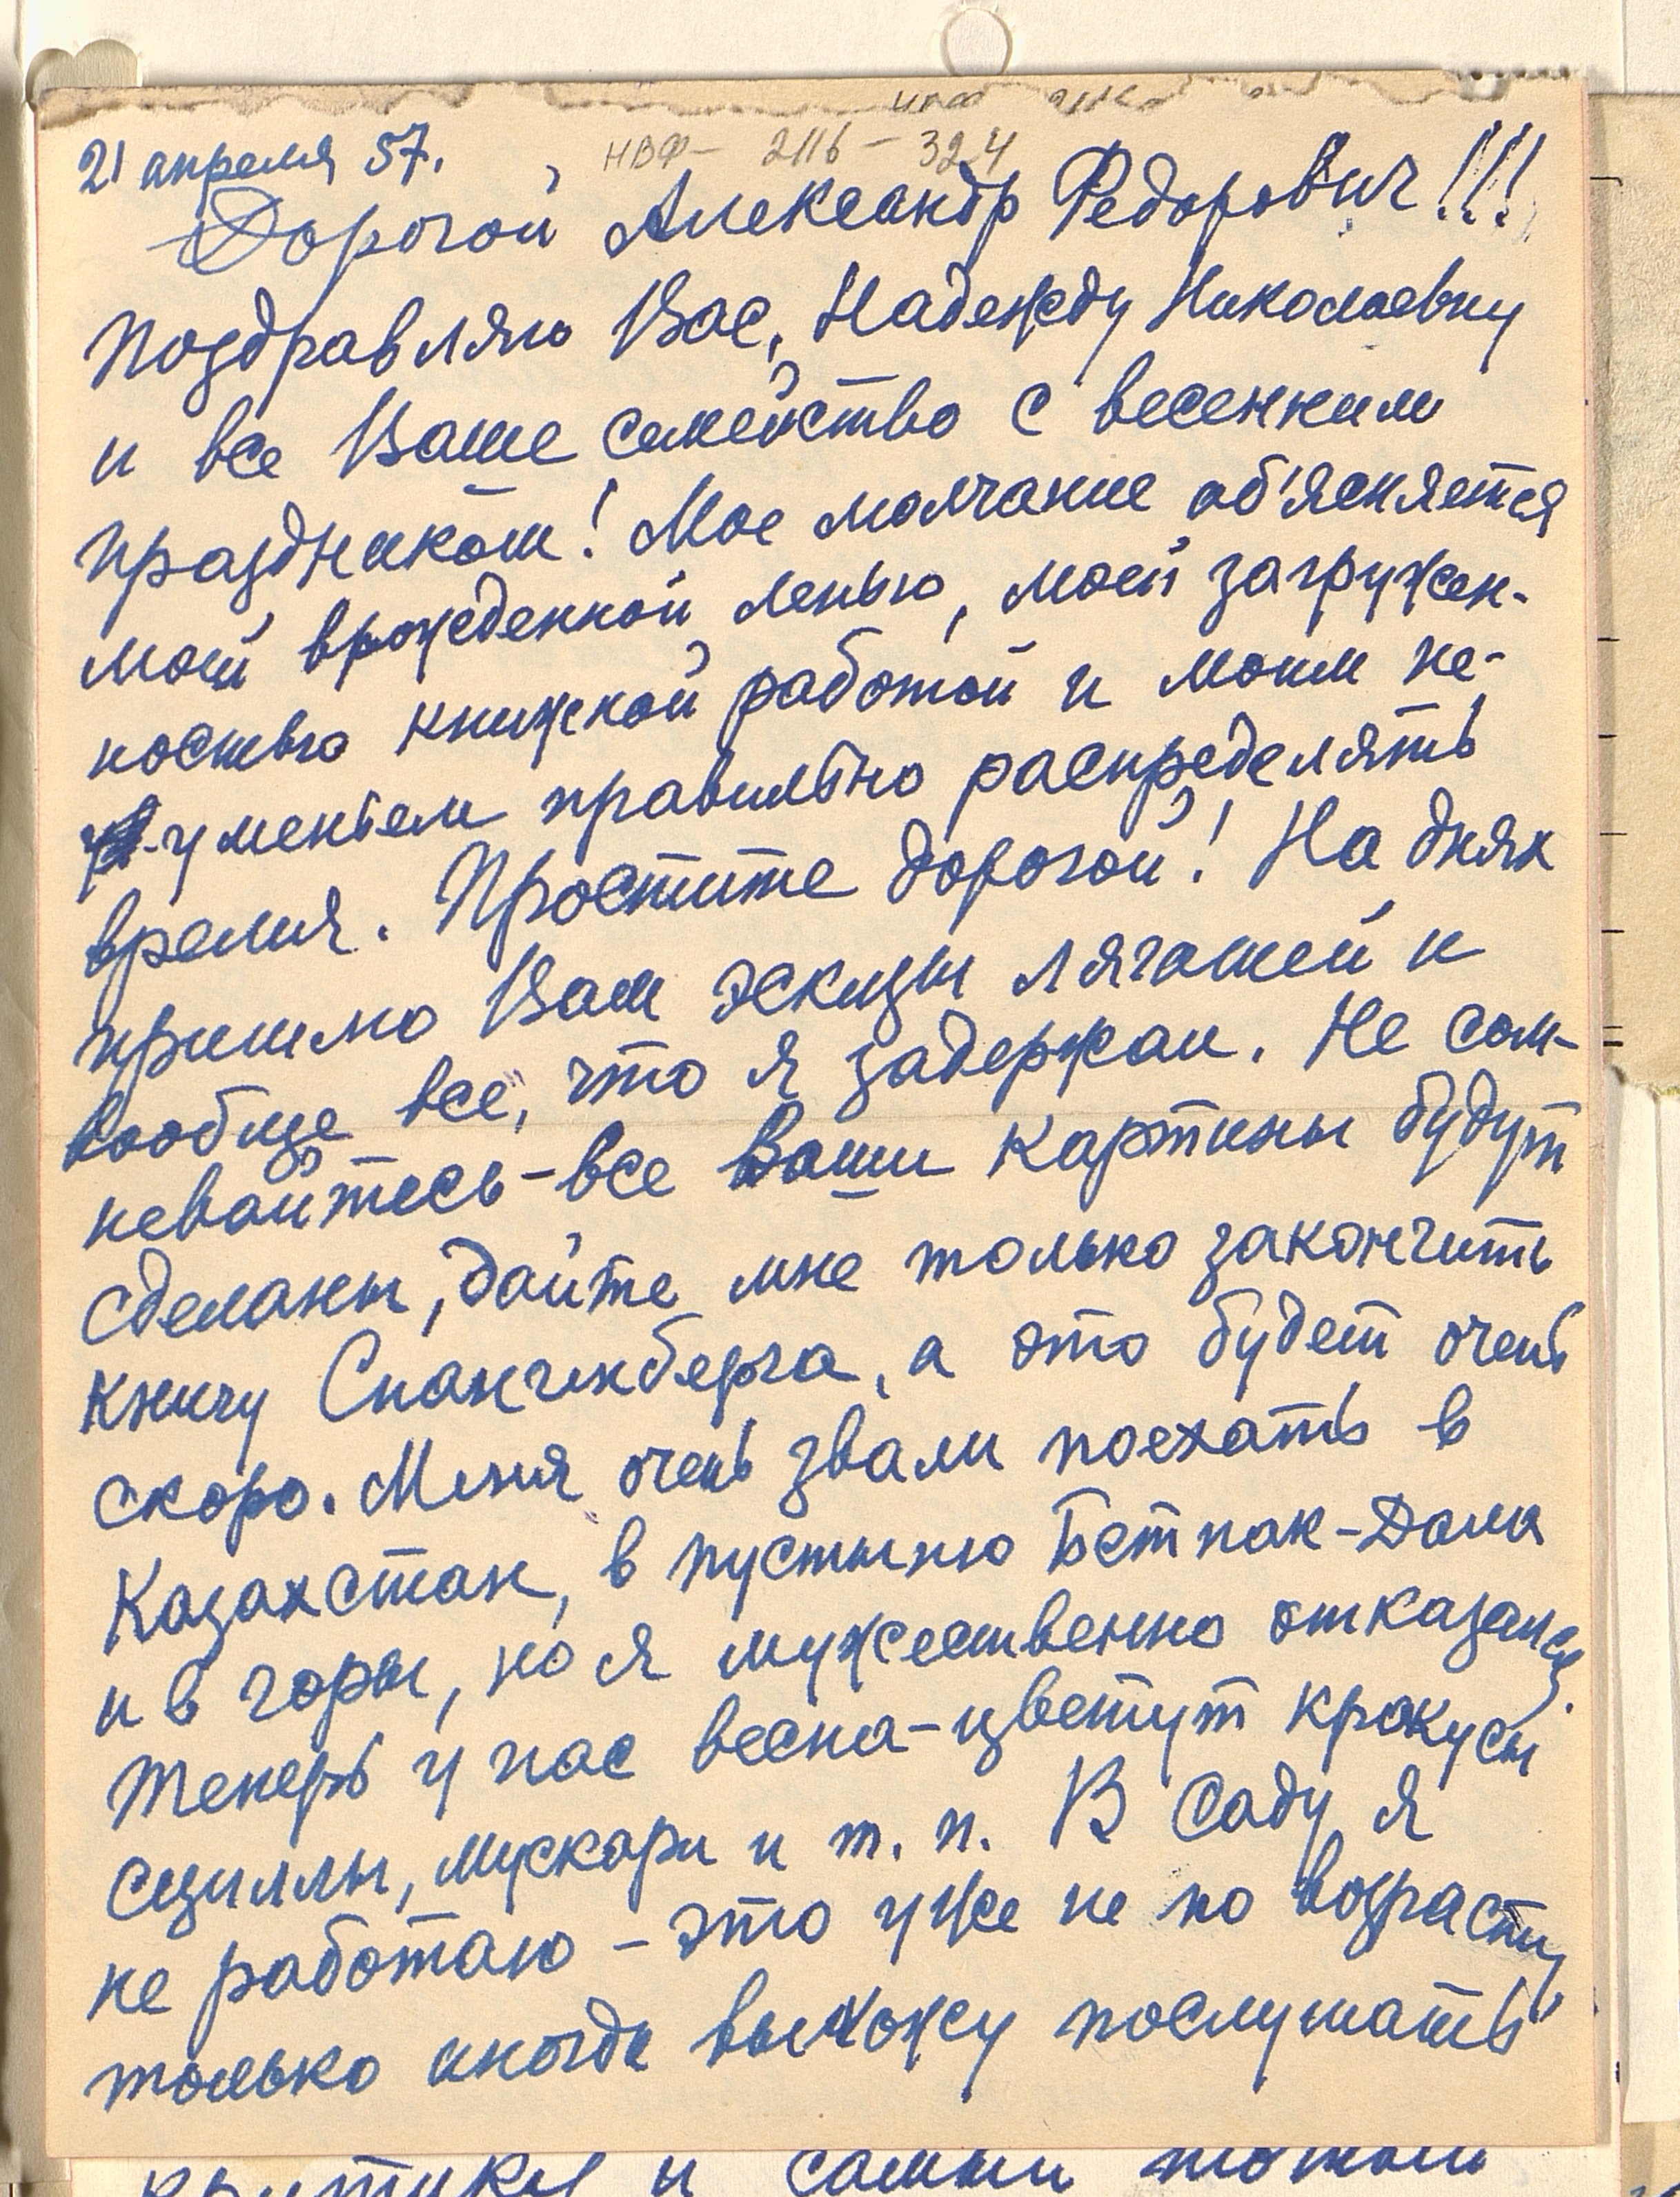 21 апреля 57.
НВФ – 2116 – 324
Дорогой Александр Федорович!!!
Поздравляю Вас, Надежду Николаевну
и все Ваше семейство с весенним
праздником! Мое молчание об'ясняется
моей врожденной ленью, моей загружен-
ностью книжной работой и моим не-
уменьем правильно распределять
время. Простите дорогой! На днях
пришлю Вам эскизы лягашей и
вообще все, что я задержал. Не сом-
невайтесь – все Ваши картины будут
сделаны, дайте мне только закончить
книгу Спангенберга, а это будет очень
скоро. Меня очень звали поехать в
Казахстан, в пустыню Бетпак-Дала
и в горы, но я мужественно отказался.
Теперь у нас весна – цветут крокусы
сциллы, мускари и т. п. В саду я
не работаю – это уже не по возрасту,
только иногда выхожу послушать
критику и самый